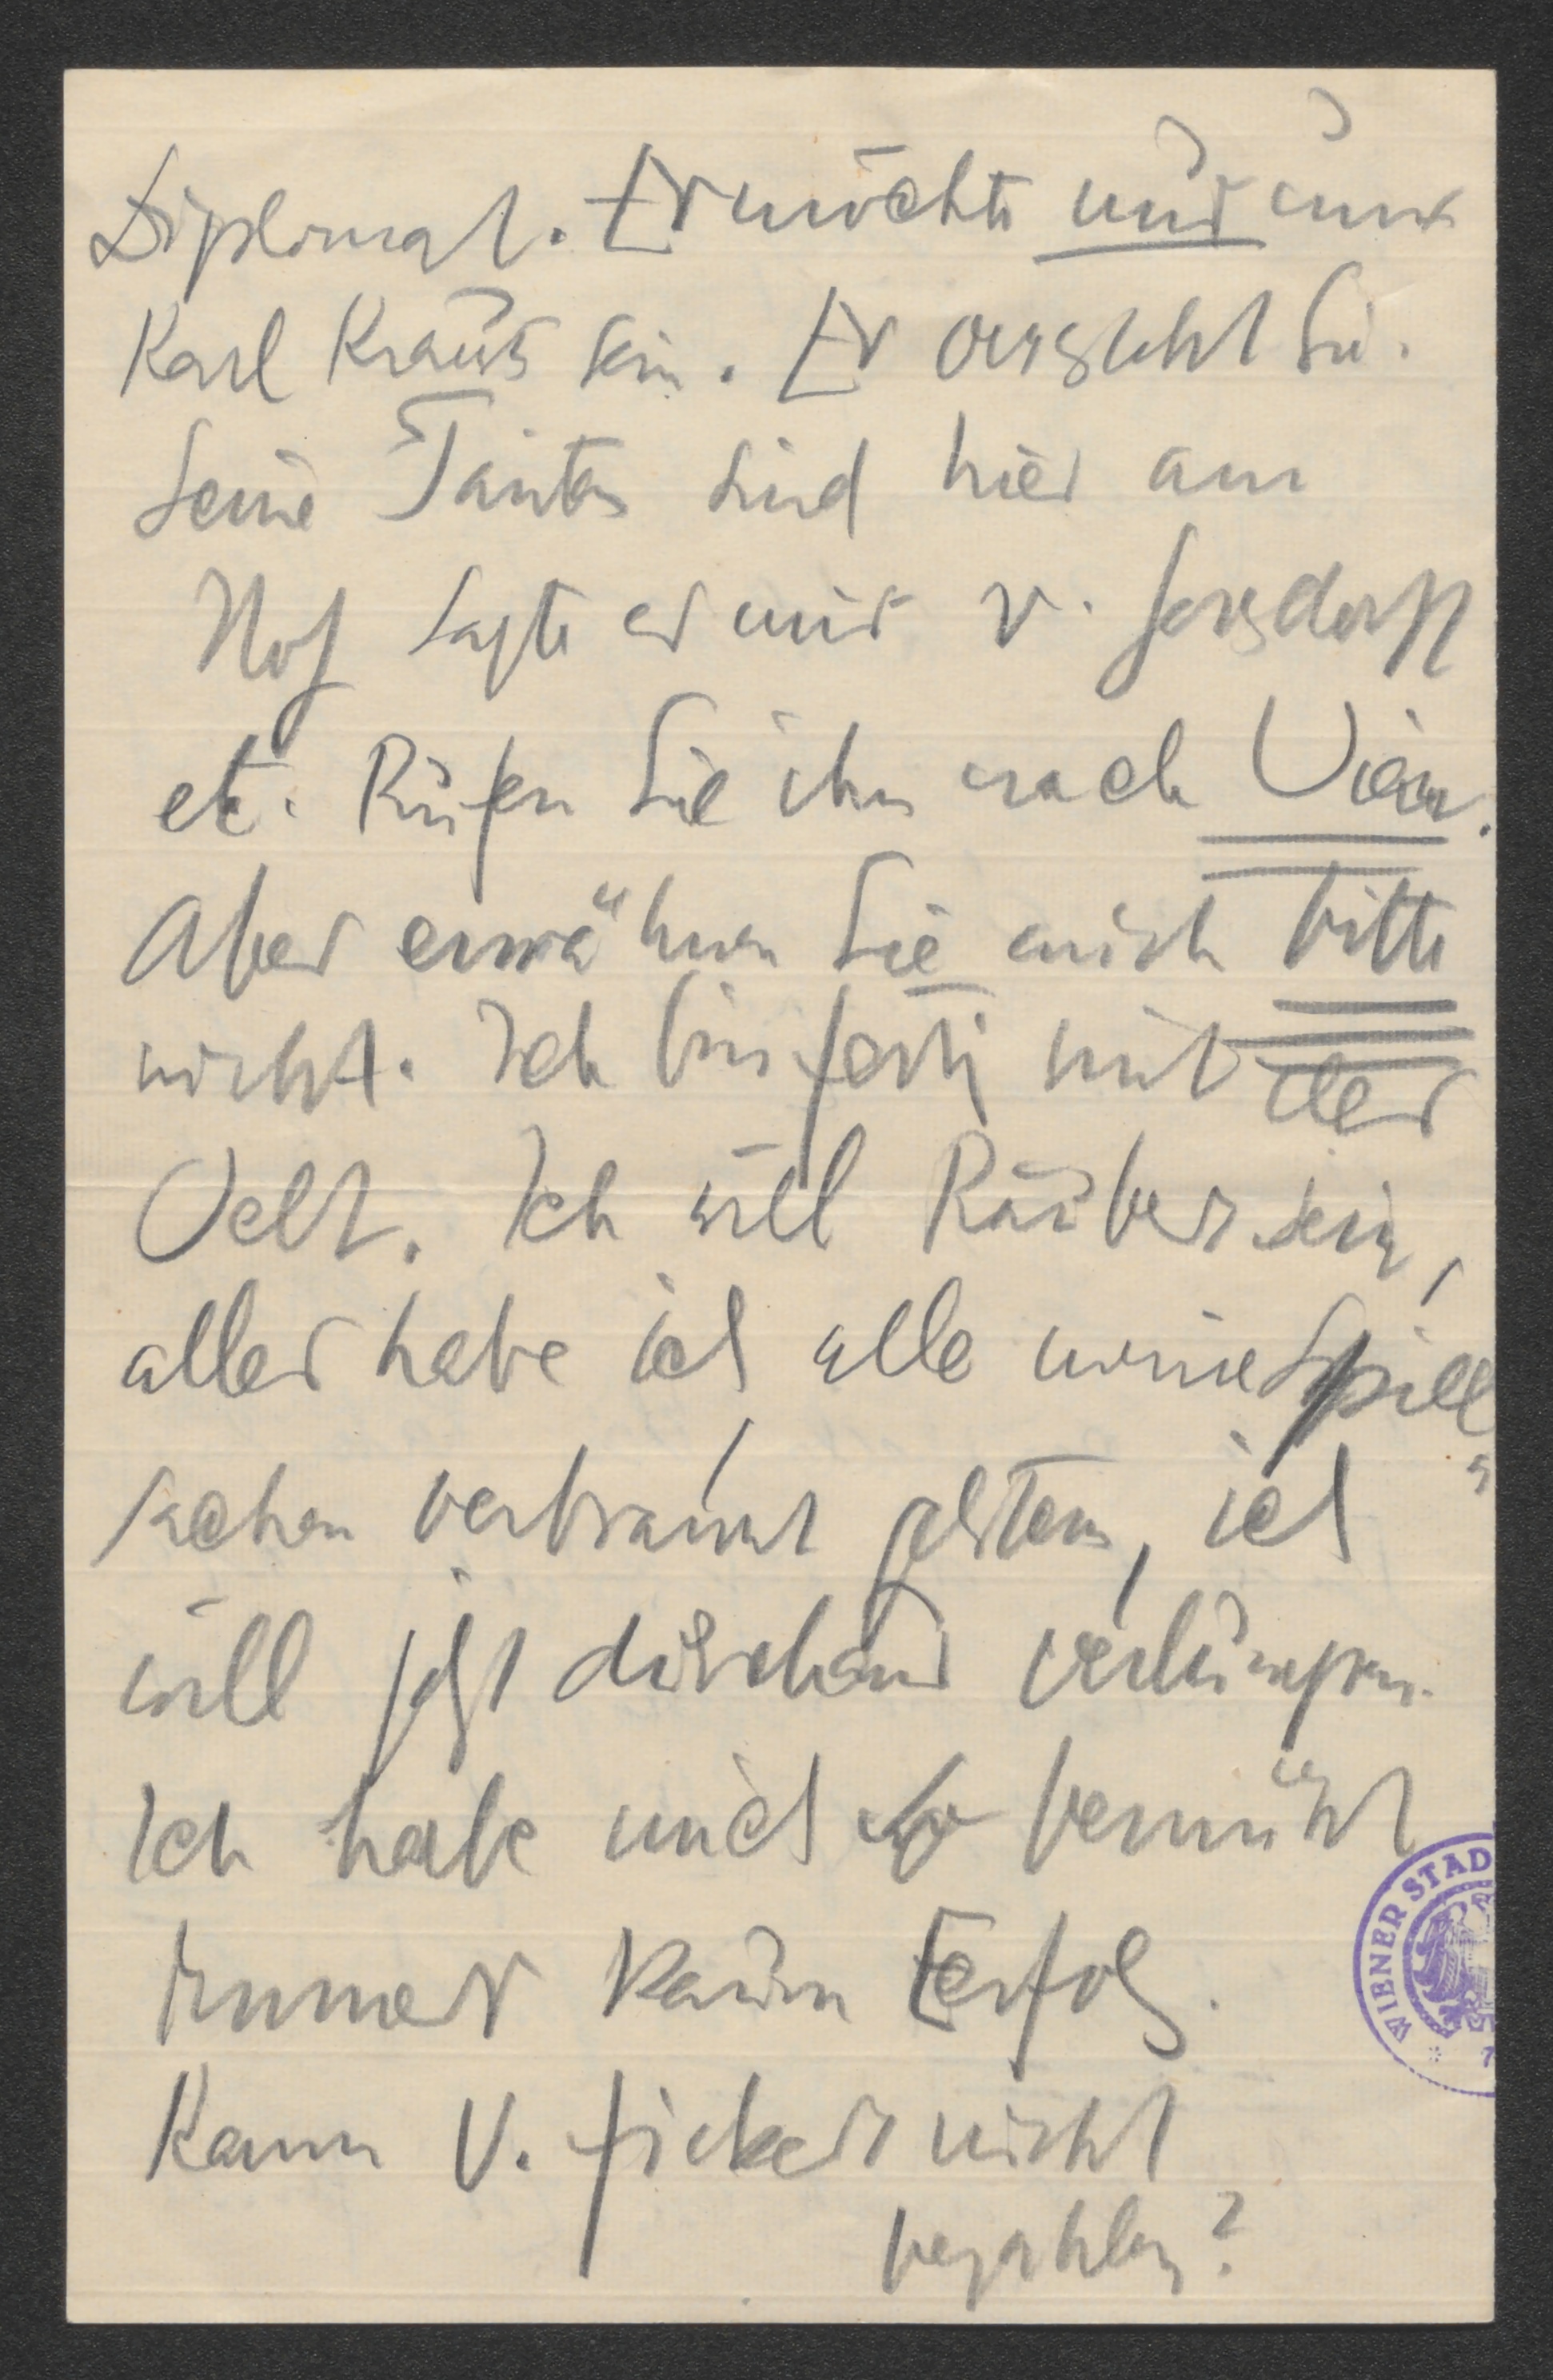 Diplomat. Er möchte nur um
Karl Kraus sein. Er versteht Sie.
Seine Tanten sind hier am
Hof sagte er mir v. Gersdorff
etc. Rufen Sie ihn nach Wien.
Aber erwähnen Sie mich bitte
nicht. Ich bin fertig mit der
Welt. Ich will Räuber sein,
aller habe ich alle meine Spiel
sachen verbrannt gestern, ich
will jetzt durchaus verlumpen.
Ich habe mich so bemüht
immer kaum Erfolg.
Kann v. Ficker nicht
bezahlen?
WIENER STAD